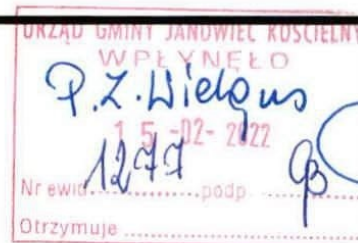 URZĄD GMINY JANOWIEC KOŚCIELNY
WPŁYNĘŁO
P. Z. Wielgus
15 -02- 2022
Nr ewid. 1277 podp.
Otrzymuje